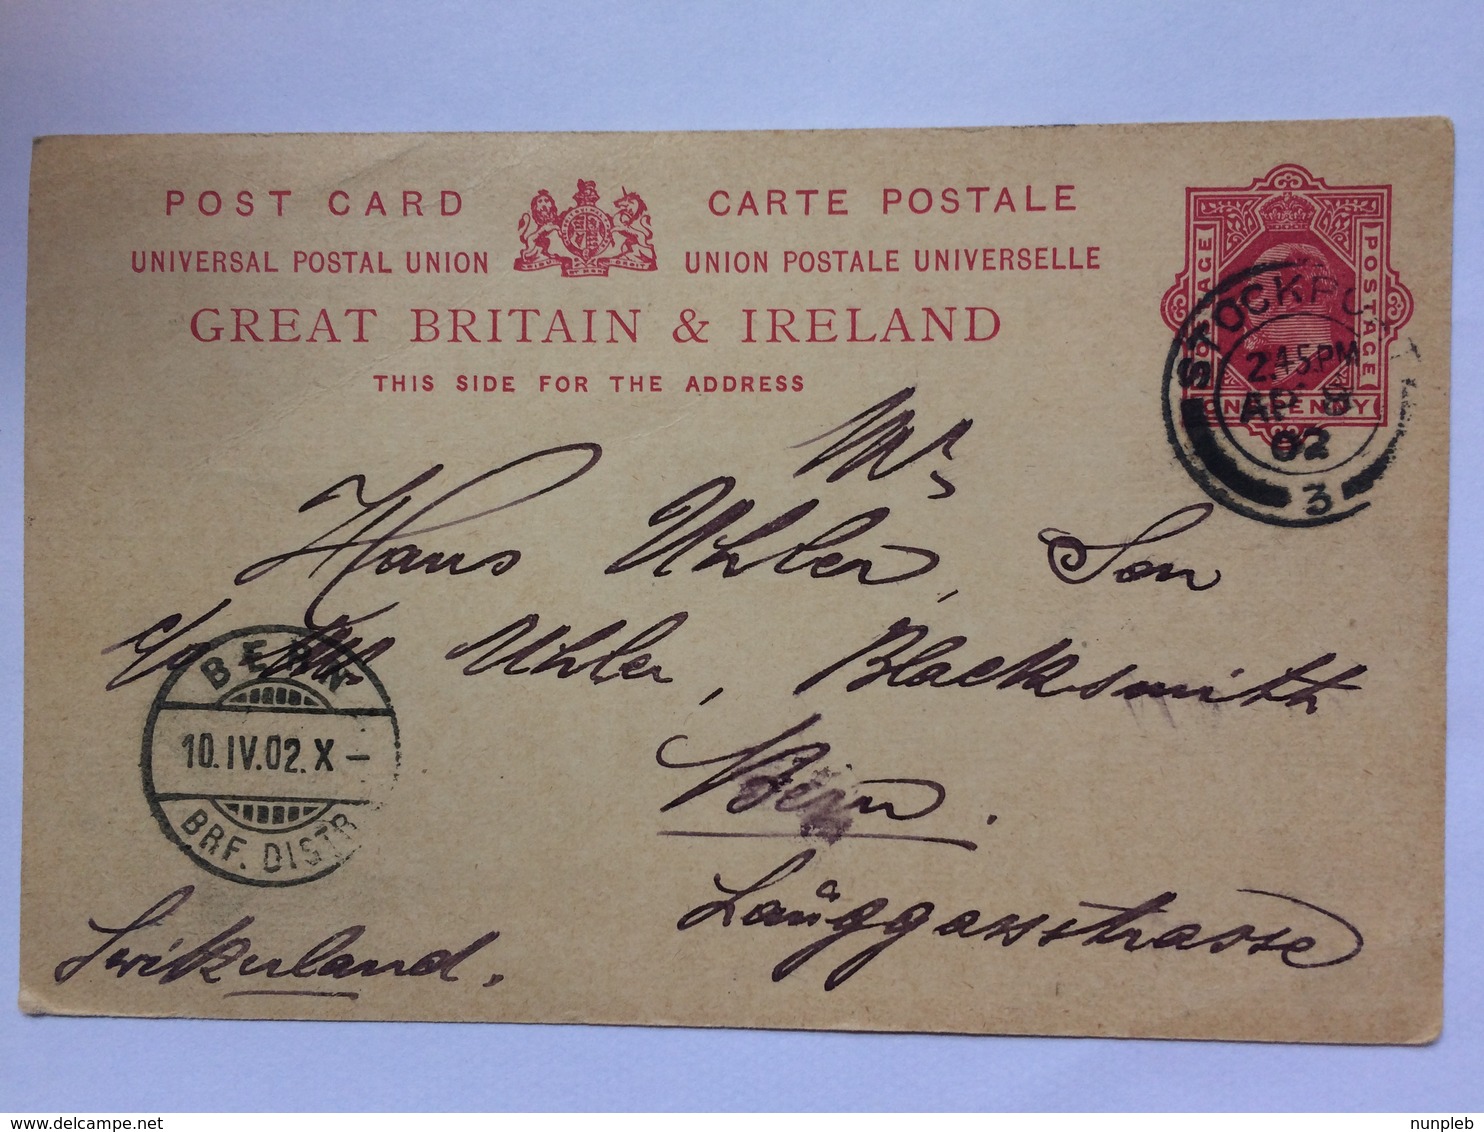 POST CARD
CARTE POSTALE
UNIVERSAL POSTAL UNION
UNION POSTALE UNIVERSELLE
GREAT BRITAIN & IRELAND
THIS SIDE FOR THE ADDRESS
POSTAGE
POSTAGE
ONE PENNY
STOCKPORT
2.45PM
AP 8
02
3
Mr
Hans Uhler, Son
c/o Uhler, Blacksmith
Bern.
Laüggassstrasse
Switzerland.
BERN
10.IV.02.X–
BRF. DISTR
delcampe.net
nunpleb